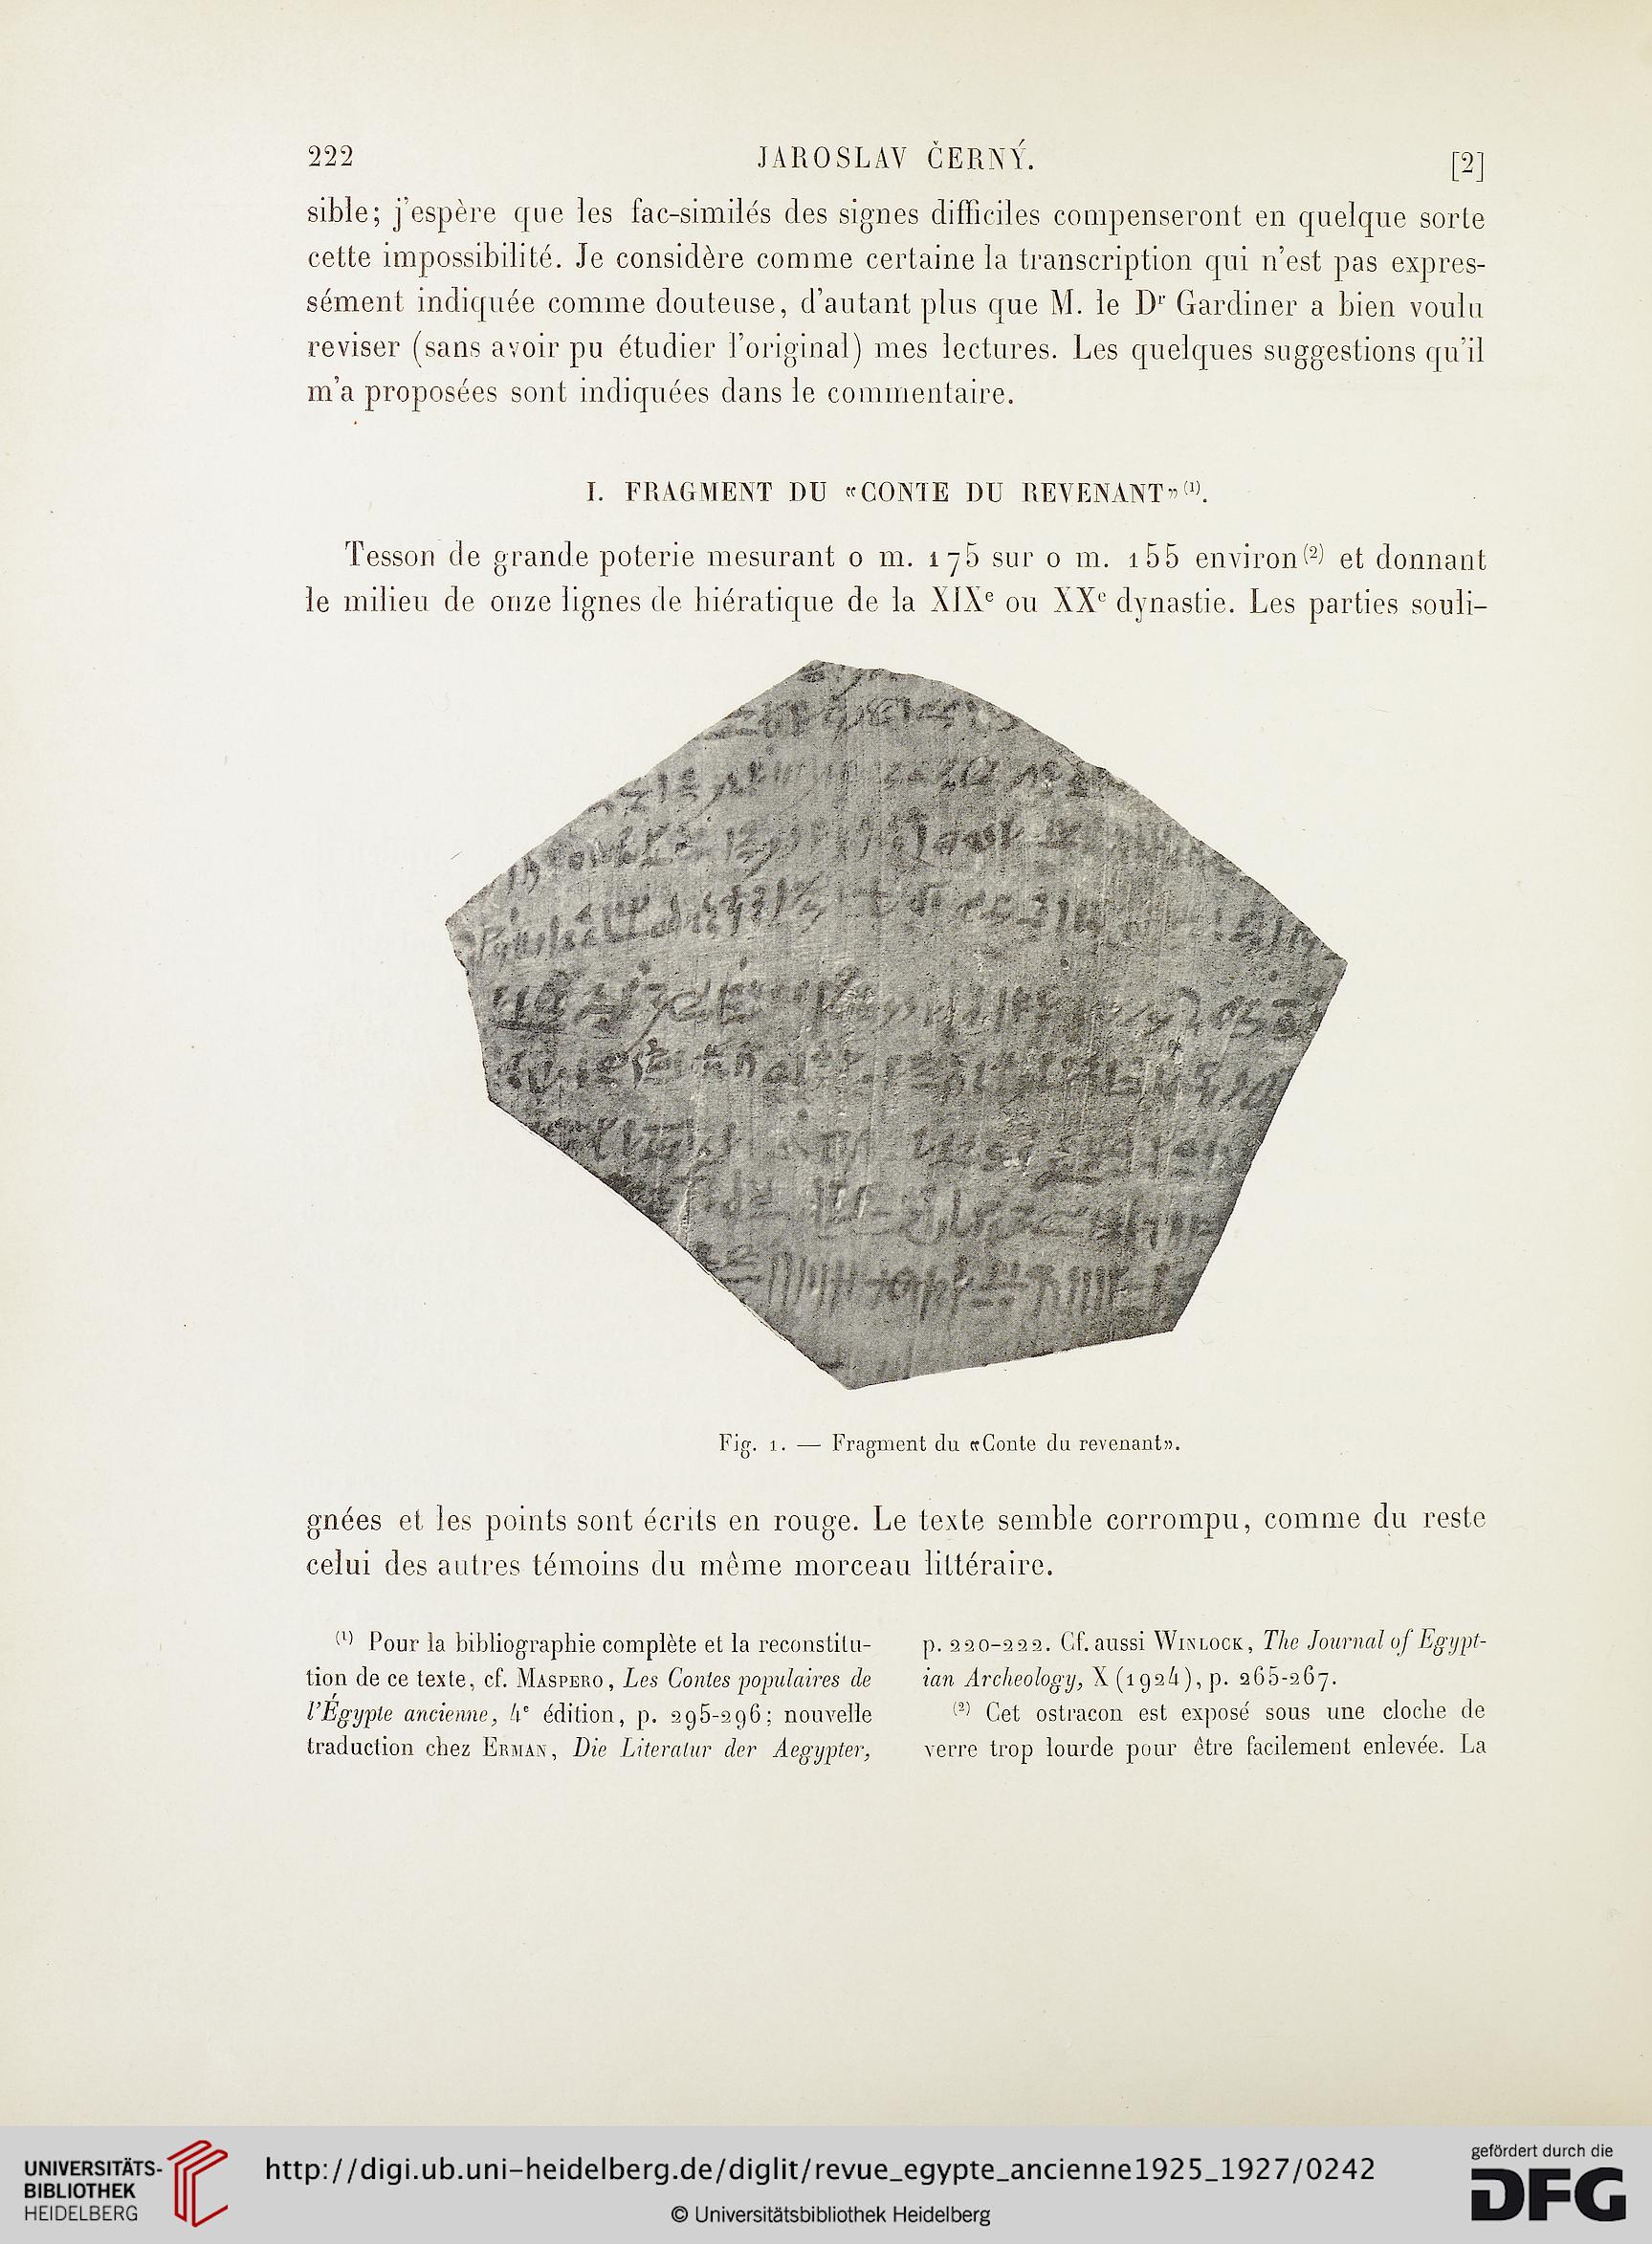 222
JAROSLAV ČERNÝ.
[2]
sible; j'espère que les fac-similés des signes difficiles compenseront en quelque sorte
cette impossibilité. Je considère comme certaine la transcription qui n'est pas expres-
sément indiquée comme douteuse, d'autant plus que M. le Dʳ Gardiner a bien voulu
reviser (sans avoir pu étudier l'original) mes lectures. Les quelques suggestions qu'il
m'a proposées sont indiquées dans le commentaire.
I. FRAGMENT DU «CONTE DU REVENANT»⁽¹⁾.
Tesson de grande poterie mesurant 0 m. 175 sur 0 m. 155 environ⁽²⁾ et donnant
le milieu de onze lignes de hiératique de la XIXᵉ ou XXᵉ dynastie. Les parties souli-
Fig. 1. — Fragment du «Conte du revenant».
gnées et les points sont écrits en rouge. Le texte semble corrompu, comme du reste
celui des autres témoins du même morceau littéraire.
⁽¹⁾ Pour la bibliographie complète et la reconstitu-
tion de ce texte, cf. MASPERO, Les Contes populaires de
l'Égypte ancienne, 4ᵉ édition, p. 295-296; nouvelle
traduction chez ERMAN, Die Literatur der Aegypter,
p. 220-222. Cf. aussi WINLOCK, The Journal of Egypt-
ian Archeology, X (1924), p. 265-267.
⁽²⁾ Cet ostracon est exposé sous une cloche de
verre trop lourde pour être facilement enlevée. La
UNIVERSITÄTS-
BIBLIOTHEK
HEIDELBERG
http://digi.ub.uni-heidelberg.de/diglit/revue_egypte_ancienne1925_1927/0242
© Universitätsbibliothek Heidelberg
gefördert durch die
DFG